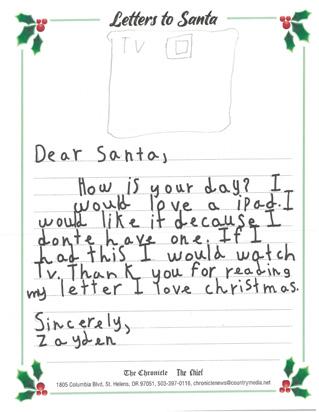 Letters to Santa
TV
Dear Santa,
How is your day? I
would love a iPad. I
would like it decause I
donte have one. If I
had this I would watch
Tv. Thank you for reading
my letter I love christmas.
Sincerely,
Zayden
The Chronicle The Chief
1805 Columbia Blvd, St. Helens, OR 97051, 503-397-0116, chroniclenews@countrymedia.net